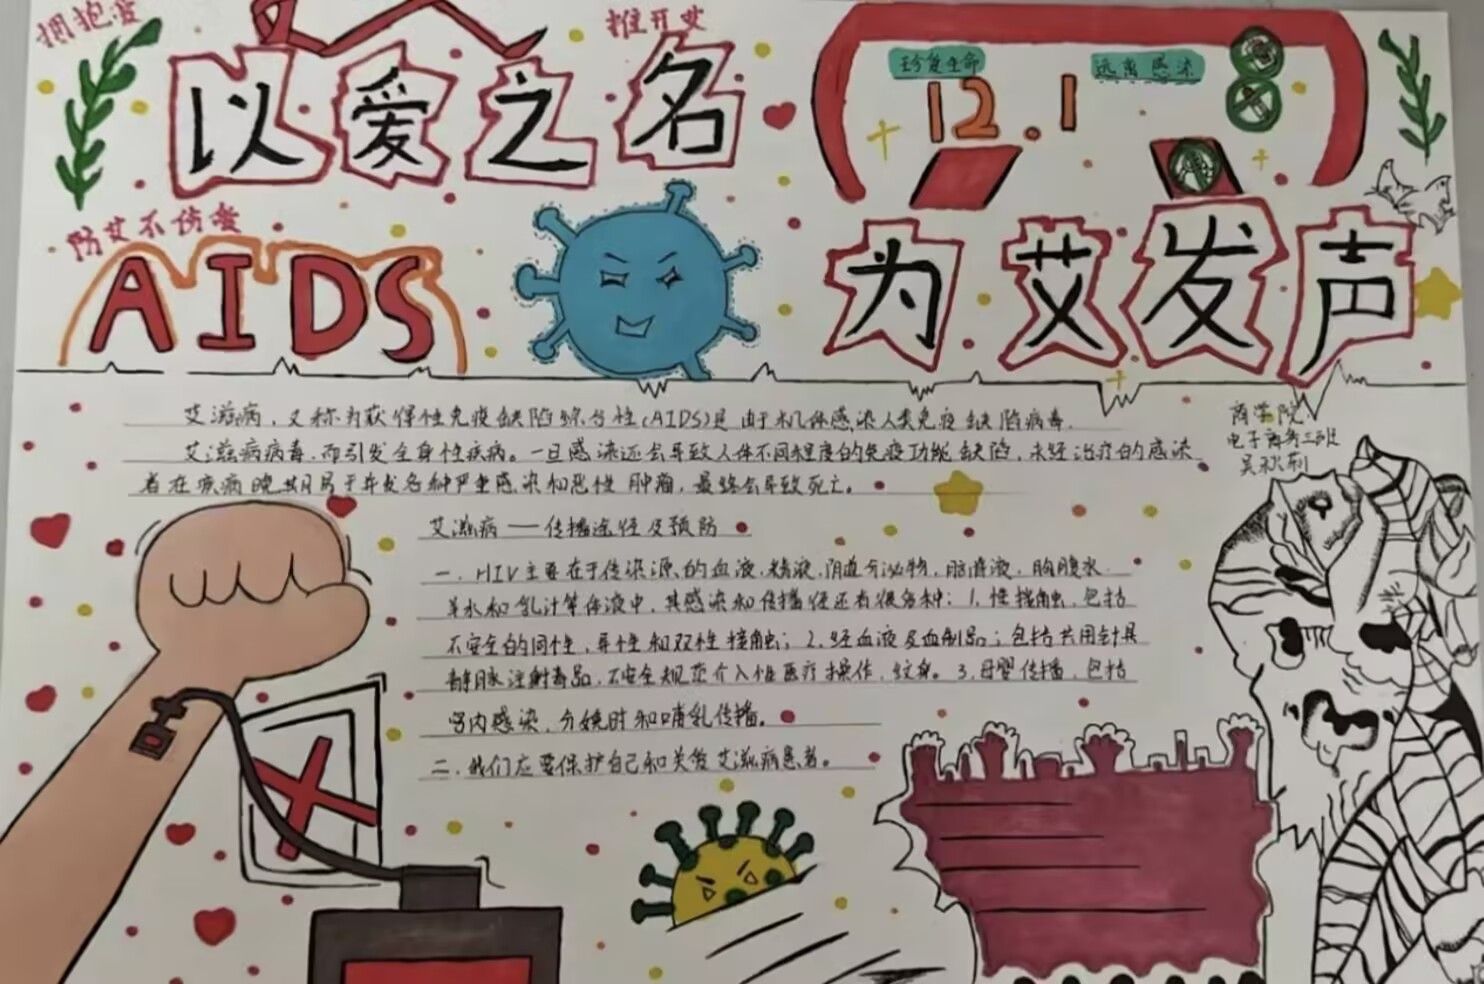 拥抱爱
推开艾
以爱之名
珍爱生命
远离感染
12.1
防艾不伤爱
AIDS
为艾发声
艾滋病，又称为获得性免疫缺陷综合性(AIDS)是由于机体感染人类免疫缺陷病毒.
艾滋病病毒.而引发全身性疾病。一旦感染还会导致人体不同程度的免疫功能缺陷，未经治疗的感染
者在疾病晚期易于并发各种严重感染和恶性肿瘤，最终会导致死亡。
商学院
电子商务三班
艾滋病——传播途径及预防
一.HIV主要在于传染源的血液.精液.阴道分泌物，脑脊液.胸腹水.
羊水和乳汁等体液中，其感染和传播径还有很多种：1.性接触.包括
不安全的同性.异性和双性接触；2.经血液及血制品；包括共用针具
静脉注射毒品.不安全规范介入性医疗操作.纹身。3.母婴传播.包括
宫内感染.分娩时和哺乳传播。
二.我们应要保护自己和关爱艾滋病患者。